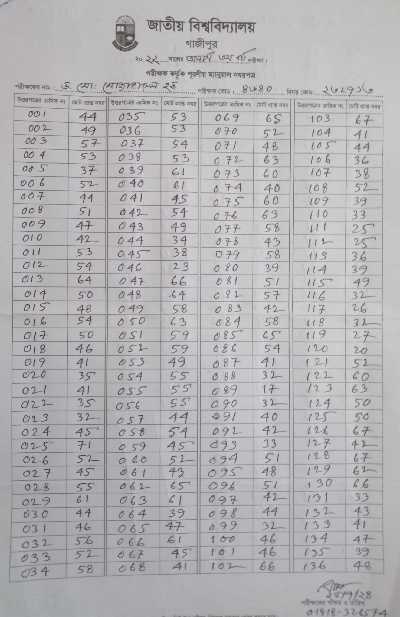 জাতীয় বিশ্ববিদ্যালয়
গাজীপুর
২০২২ সালের পরীক্ষা।
পরীক্ষক কর্তৃক পূরণীয় ম্যানুয়াল নম্বরপত্র
পরীক্ষকের নাম: ড. মোঃ পরীক্ষা কোড: বিষয় কোড:
উত্তরপত্রের ক্রমিক নং মোট প্রাপ্ত নম্বর উত্তরপত্রের ক্রমিক নং মোট প্রাপ্ত নম্বর উত্তরপত্রের ক্রমিক নং মোট প্রাপ্ত নম্বর উত্তরপত্রের ক্রমিক নং মোট প্রাপ্ত নম্বর
001 44 035 53 069 65 103 67
002 49 036 53 070 52 104 41
003 57 037 54 071 48 105 44
004 53 038 53 072 63 106 36
005 37 039 61 073 60 107 38
006 52 040 61 074 40 108 52
007 44 041 45 075 60 109 39
008 51 042 54 076 63 110 33
009 47 043 49 077 58 111 25
010 42 044 34 078 43 112 25
011 53 045 38 079 58 113 36
012 54 046 23 080 39 114 39
013 64 047 66 081 51 115 49
014 50 048 64 082 57 116 32
015 48 049 58 083 42 117 26
016 54 050 63 084 58 118 32
017 50 051 59 085 65 119 27
018 46 052 59 086 54 120 20
019 41 053 49 087 41 121 52
020 35 054 55 088 32 122 60
021 41 055 55 089 17 123 63
022 35 056 55 090 32 124 50
023 32 057 44 091 40 125 50
024 45 058 54 092 42 126 67
025 71 059 45 093 33 127 42
026 52 060 52 094 51 128 67
027 45 061 43 095 48 129 62
028 55 062 65 096 51 130 66
029 61 063 61 097 42 131 33
030 44 064 39 098 44 132 43
031 46 065 47 099 32 133 41
032 56 066 61 100 46 134 47
033 52 067 45 101 46 135 39
034 58 068 41 102 66 136 48
পরীক্ষকের স্বাক্ষর ও তারিখ